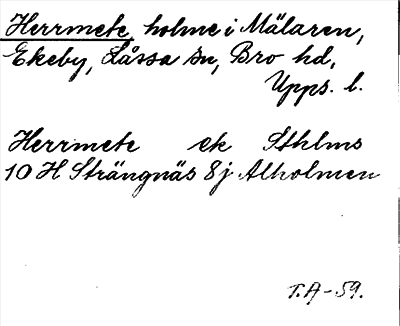 Herrmete, holme i Mälaren,
Ekeby, Låssa sn, Bro hd,
Upps. l.
Herrmete ek Sthlms
10 H Strängnäs 8j Alholmen
T.A-59.